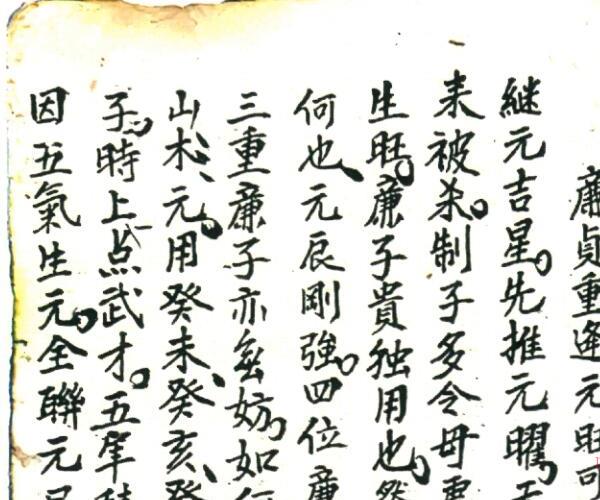 廉貞重逢元旺可
継元吉星。先推元曜。
耒被杀。制子多令母
生旺。廉子貴独用也。
何也、元辰剛強。四位廉
三重廉子亦無妨。如
山木、元。用癸未、癸亥、癸
子。時上点武才。五
因五氣生元。全聯元